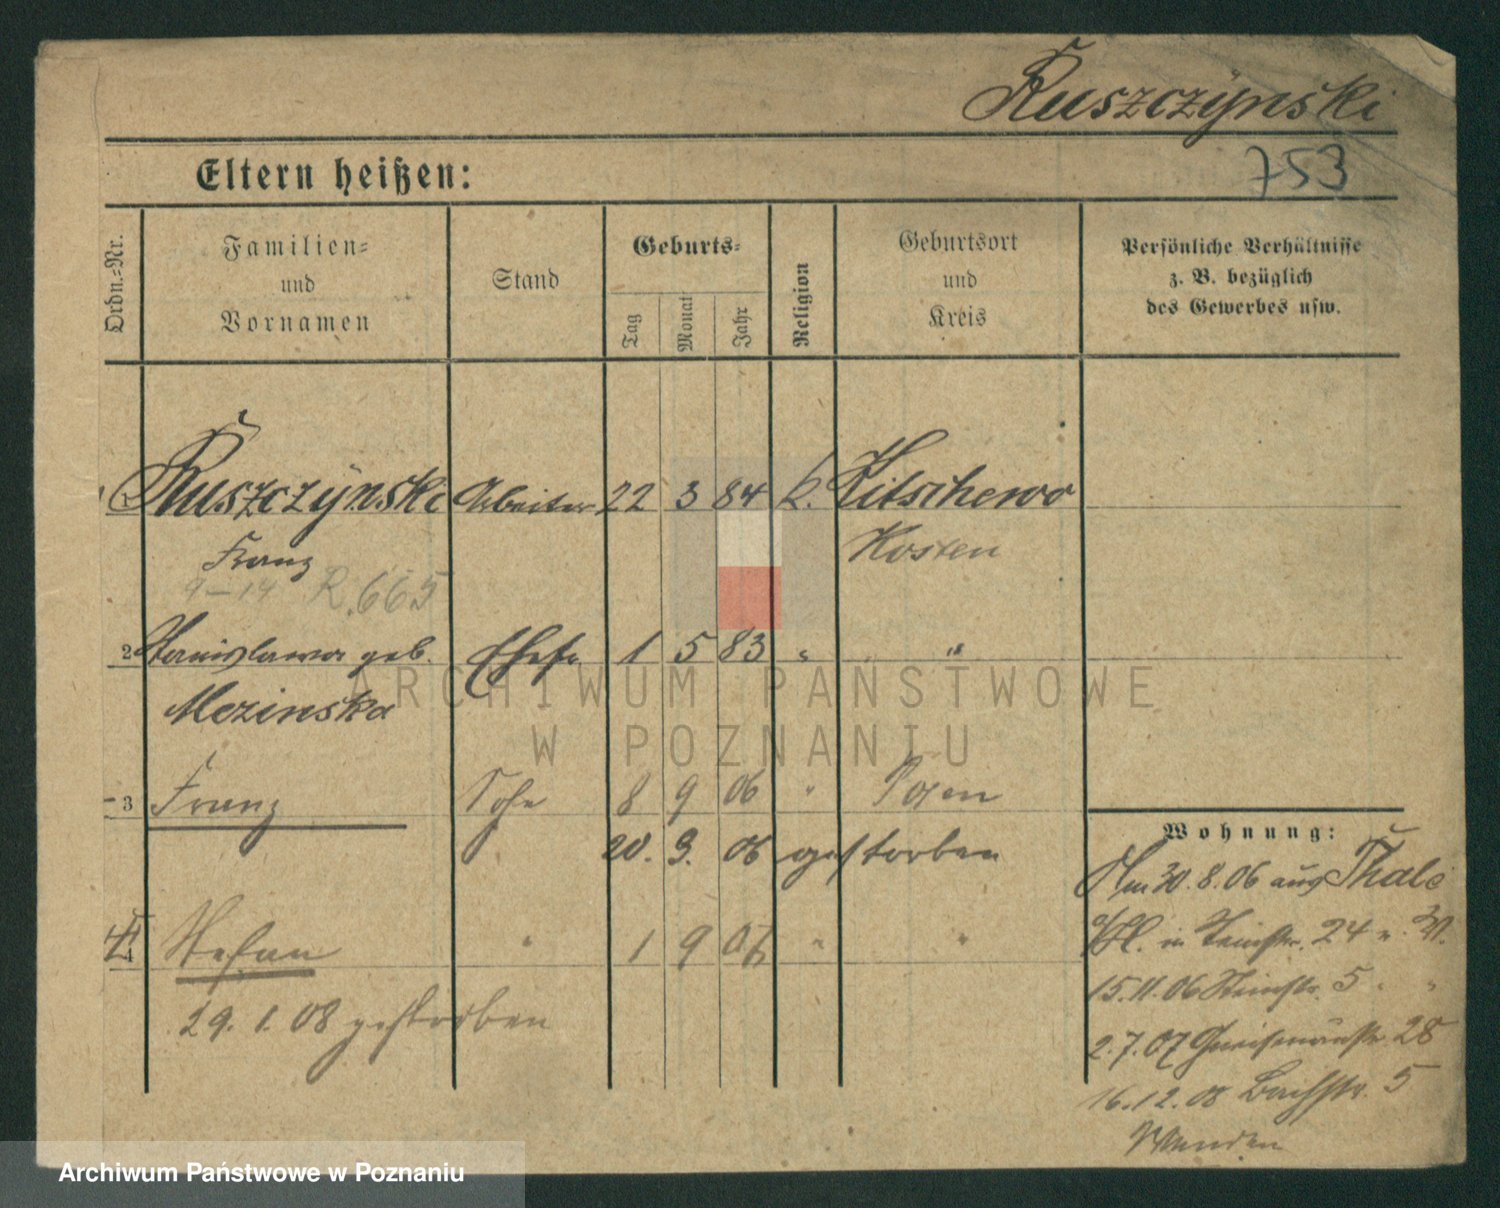 Ruszczÿnski
Eltern heißen:
753
Ordn.-Nr.
Familien-
und
Vornamen
Stand
Geburts-
Tag
Monat
Jahr
Religion
Geburtsort
und
Kreis
Persönliche Verhältnisse
z. B. bezüglich
des Gewerbes usw.
1 Ruszczÿnski Arbeiter 22 3 84 k. Kitschewo
Franz Kosten
9-14 R.665
2 Stanislawa geb. Ehefr 1 5 83 " "
Mezinska
ARCHIWUM PAŃSTWOWE
W POZNANIU
3 Franz Sohn 8 9 06 " Posen
20. 9. 06 gestorben
4 Stefan " 1 9 07 " "
29. 1. 08 gestorben
Wohnung:
Am 30. 8. 06 aus Thale
in 24
15. 11. 06 5 " "
2. 7. 07 Gneisenaustr 28
16. 12. 08 Bachstr. 5
Archiwum Państwowe w Poznaniu